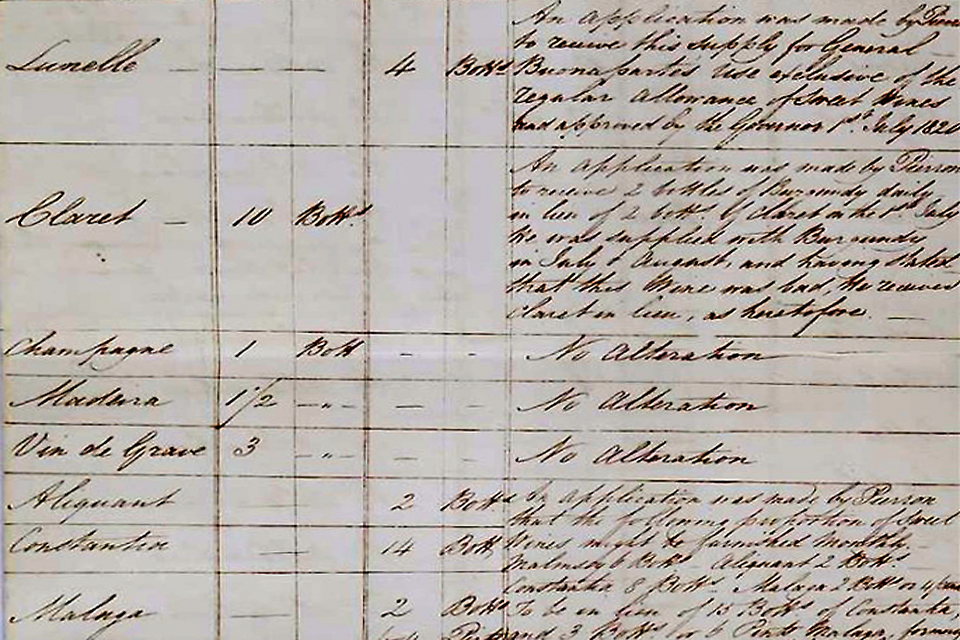 Lunelle — — — 4 Botts
An application was made by Pierron
to receive this supply for General
Buonaparte's Use exclusive of the
regular allowance of Sweet Wines
and approved by the Governor 1st. July 1820
Claret — 10 Botts.
An application was made by Pierron
to receive 2 bottles of Burgundy daily
in lieu of 2 botts. of Claret on the 1st. July
He was supplied with Burgundy
in July & August, and having stated
that this Wine was bad, he received
Claret in lieu, as heretofore. —
Champagne 1 Bott — - No Alteration
Madeira 1 1/2 -„- — - No Alteration
Vin de Grave 3 -„- — - No Alteration
Aliquant — 2 Botts
Constantia — 14 Botts
Malaga — 2 Botts
An application was made by Pierron
that the following proportion of Sweet
Wines might be furnished Monthly. —
Malmsey 6 Botts. Aliquant 2 Botts.
Constantia 8 Botts. Malaga 2 Botts or 4
To be in lieu of 15 Botts of Constantia
and 3 Botts or 6 Pints Malaga